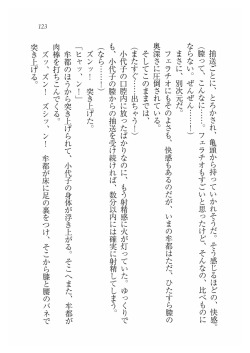 123
抽送ごとに、とろかされ、亀頭から持っていかれそうだ。そう感じるほどの、快感。
（膣って、こんなに……。フェラチオもすごいと思ったけど、そんなの、比べものに
ならない。ぜんぜん……）
まさに、別次元だ。
フェラチオにもそのよさも、快感もあるのだが、いまの牟都はただ、ひたすら膣の
奥深さに圧倒されていた。
そしてこのままでは、
（またすぐ……出ちゃう）
小代子の口腔内に放ったばかりなのに、もう射精感に火が灯っていた。ゆっくりで
も、小代子の膣からの抽送を受け続ければ、数分以内には確実に射精してしまう。
（なら……）
ズンッ！　突き上げた。
「ヒャッ、ン！」
牟都のほうから突き上げられて、小代子の身体が浮き上がる。そこへまた、牟都が
肉棒を打ちこんでくる。
ズンッ、ズッ、ン！
牟都が床に足の裏をつけ、そこから膝と腰のバネで
突き上げる。